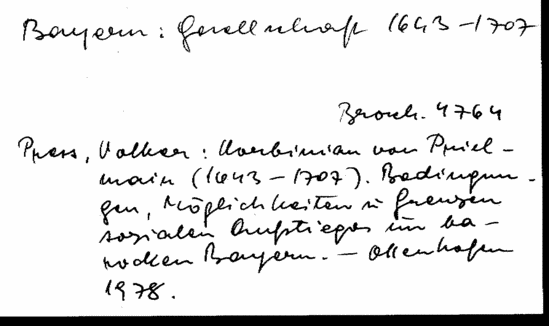 Bayern: Gesellschaft 1643-1707
Brosch. 4764
Press, Volker: Korbinian von Priel-
mair (1643-1707). Bedingun-
gen, Möglichkeiten u Grenzen
sozialen Aufstieges im ba-
rocken Bayern. - Ottenhofen
1978.